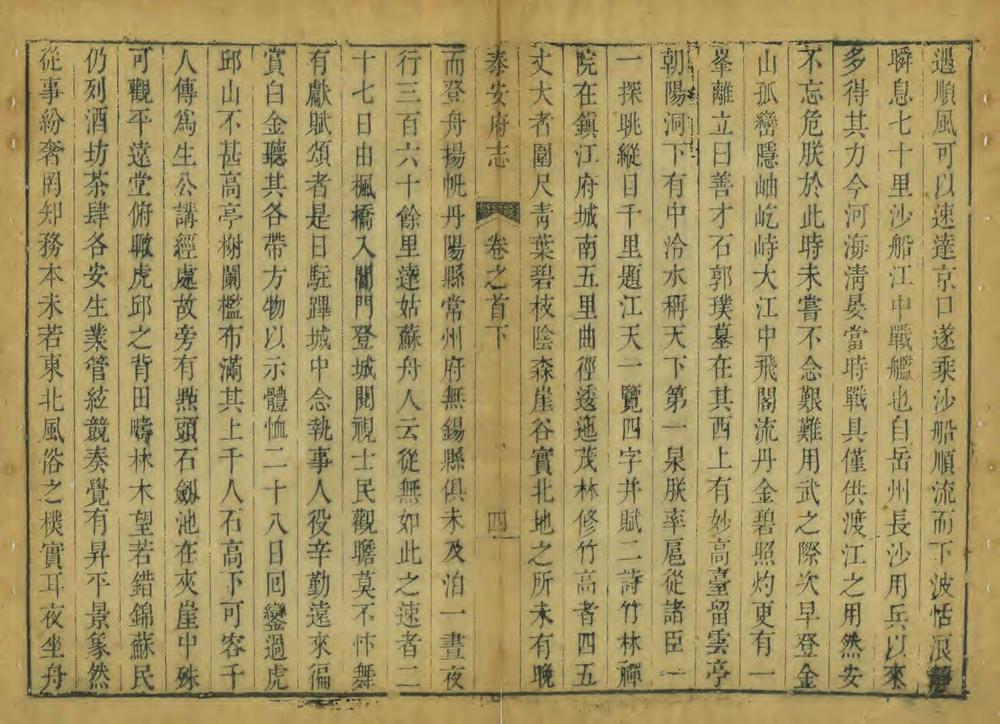 遇順風可以速達京口遂乘沙船順流而下波恬浪靜
瞬息七十里沙船江中戰艦也自岳州長沙用兵以來
多得其力今河海淸晏當時戰具僅供渡江之用然安
不忘危朕於此時未嘗不念艱難用武之際次早登金
山孤巒隱岫屹峙大江中飛閣流丹金碧照灼更有一
峯離立曰善才石郭璞墓在其西上有妙高臺留雲亭
朝陽洞下有中冷水稱天下第一泉朕率扈從諸臣一
一探眺縱目千里題江天一覽四字并賦二詩竹林禪
院在鎭江府城南五里曲徑透迤茂林修竹高者四五
丈大者圍尺靑葉碧枝陰森崖谷實北地之所未有晚
泰安府志 卷之首下 四
而登舟揚帆丹陽縣常州府無錫縣俱未及泊一晝夜
行三百六十餘里達姑蘇舟人云從無如此之速者二
十七日由楓橋入閶門登城閱視士民觀瞻莫不忭舞
有獻賦頌者是日駐蹕城中念執事人役辛勤遠來徧
賞白金聽其各帶方物以示體恤二十八日回鑾過虎
邱山不甚高亭榭闌檻布滿其上千人石高下可容千
人傳爲生公講經處故旁有點頭石劔池在夾崖中殊
可觀平遠堂俯瞰虎邱之背田疇林木望若錯錦蘇民
仍列酒坊茶肆各安生業管絃競奏覺有昇平景象然
從事紛奢罔知務本未若東北風俗之樸實耳夜坐舟